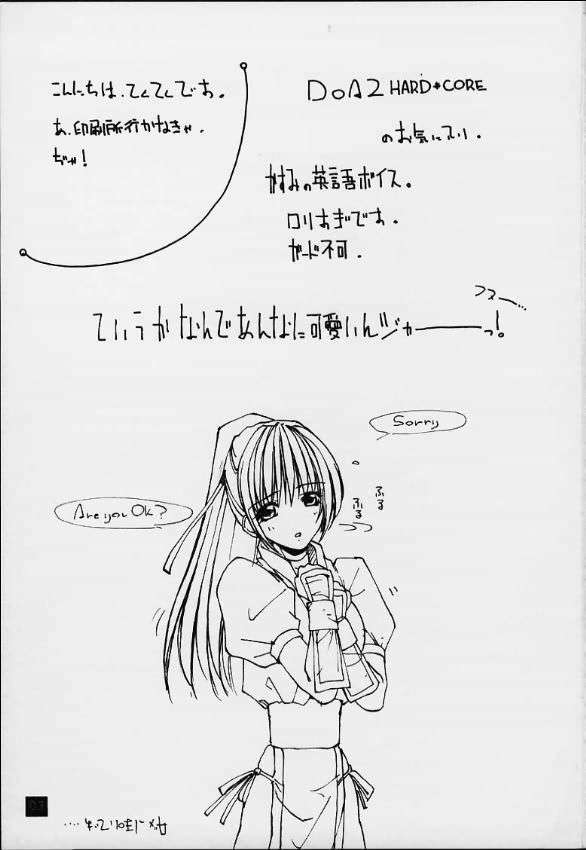 こんにちは、てくてくです。
あ、印刷所行かなきゃ。
ぢゃ!
DoA2 HARD*CORE
のお気に入り。
かすみの英語ボイス。
ロリすぎです。
ガード不可。
ていうかなんであんなに可愛いんジャーーっ!
フスー…
Sorry
Are you Ok?
ふる
ふる
03